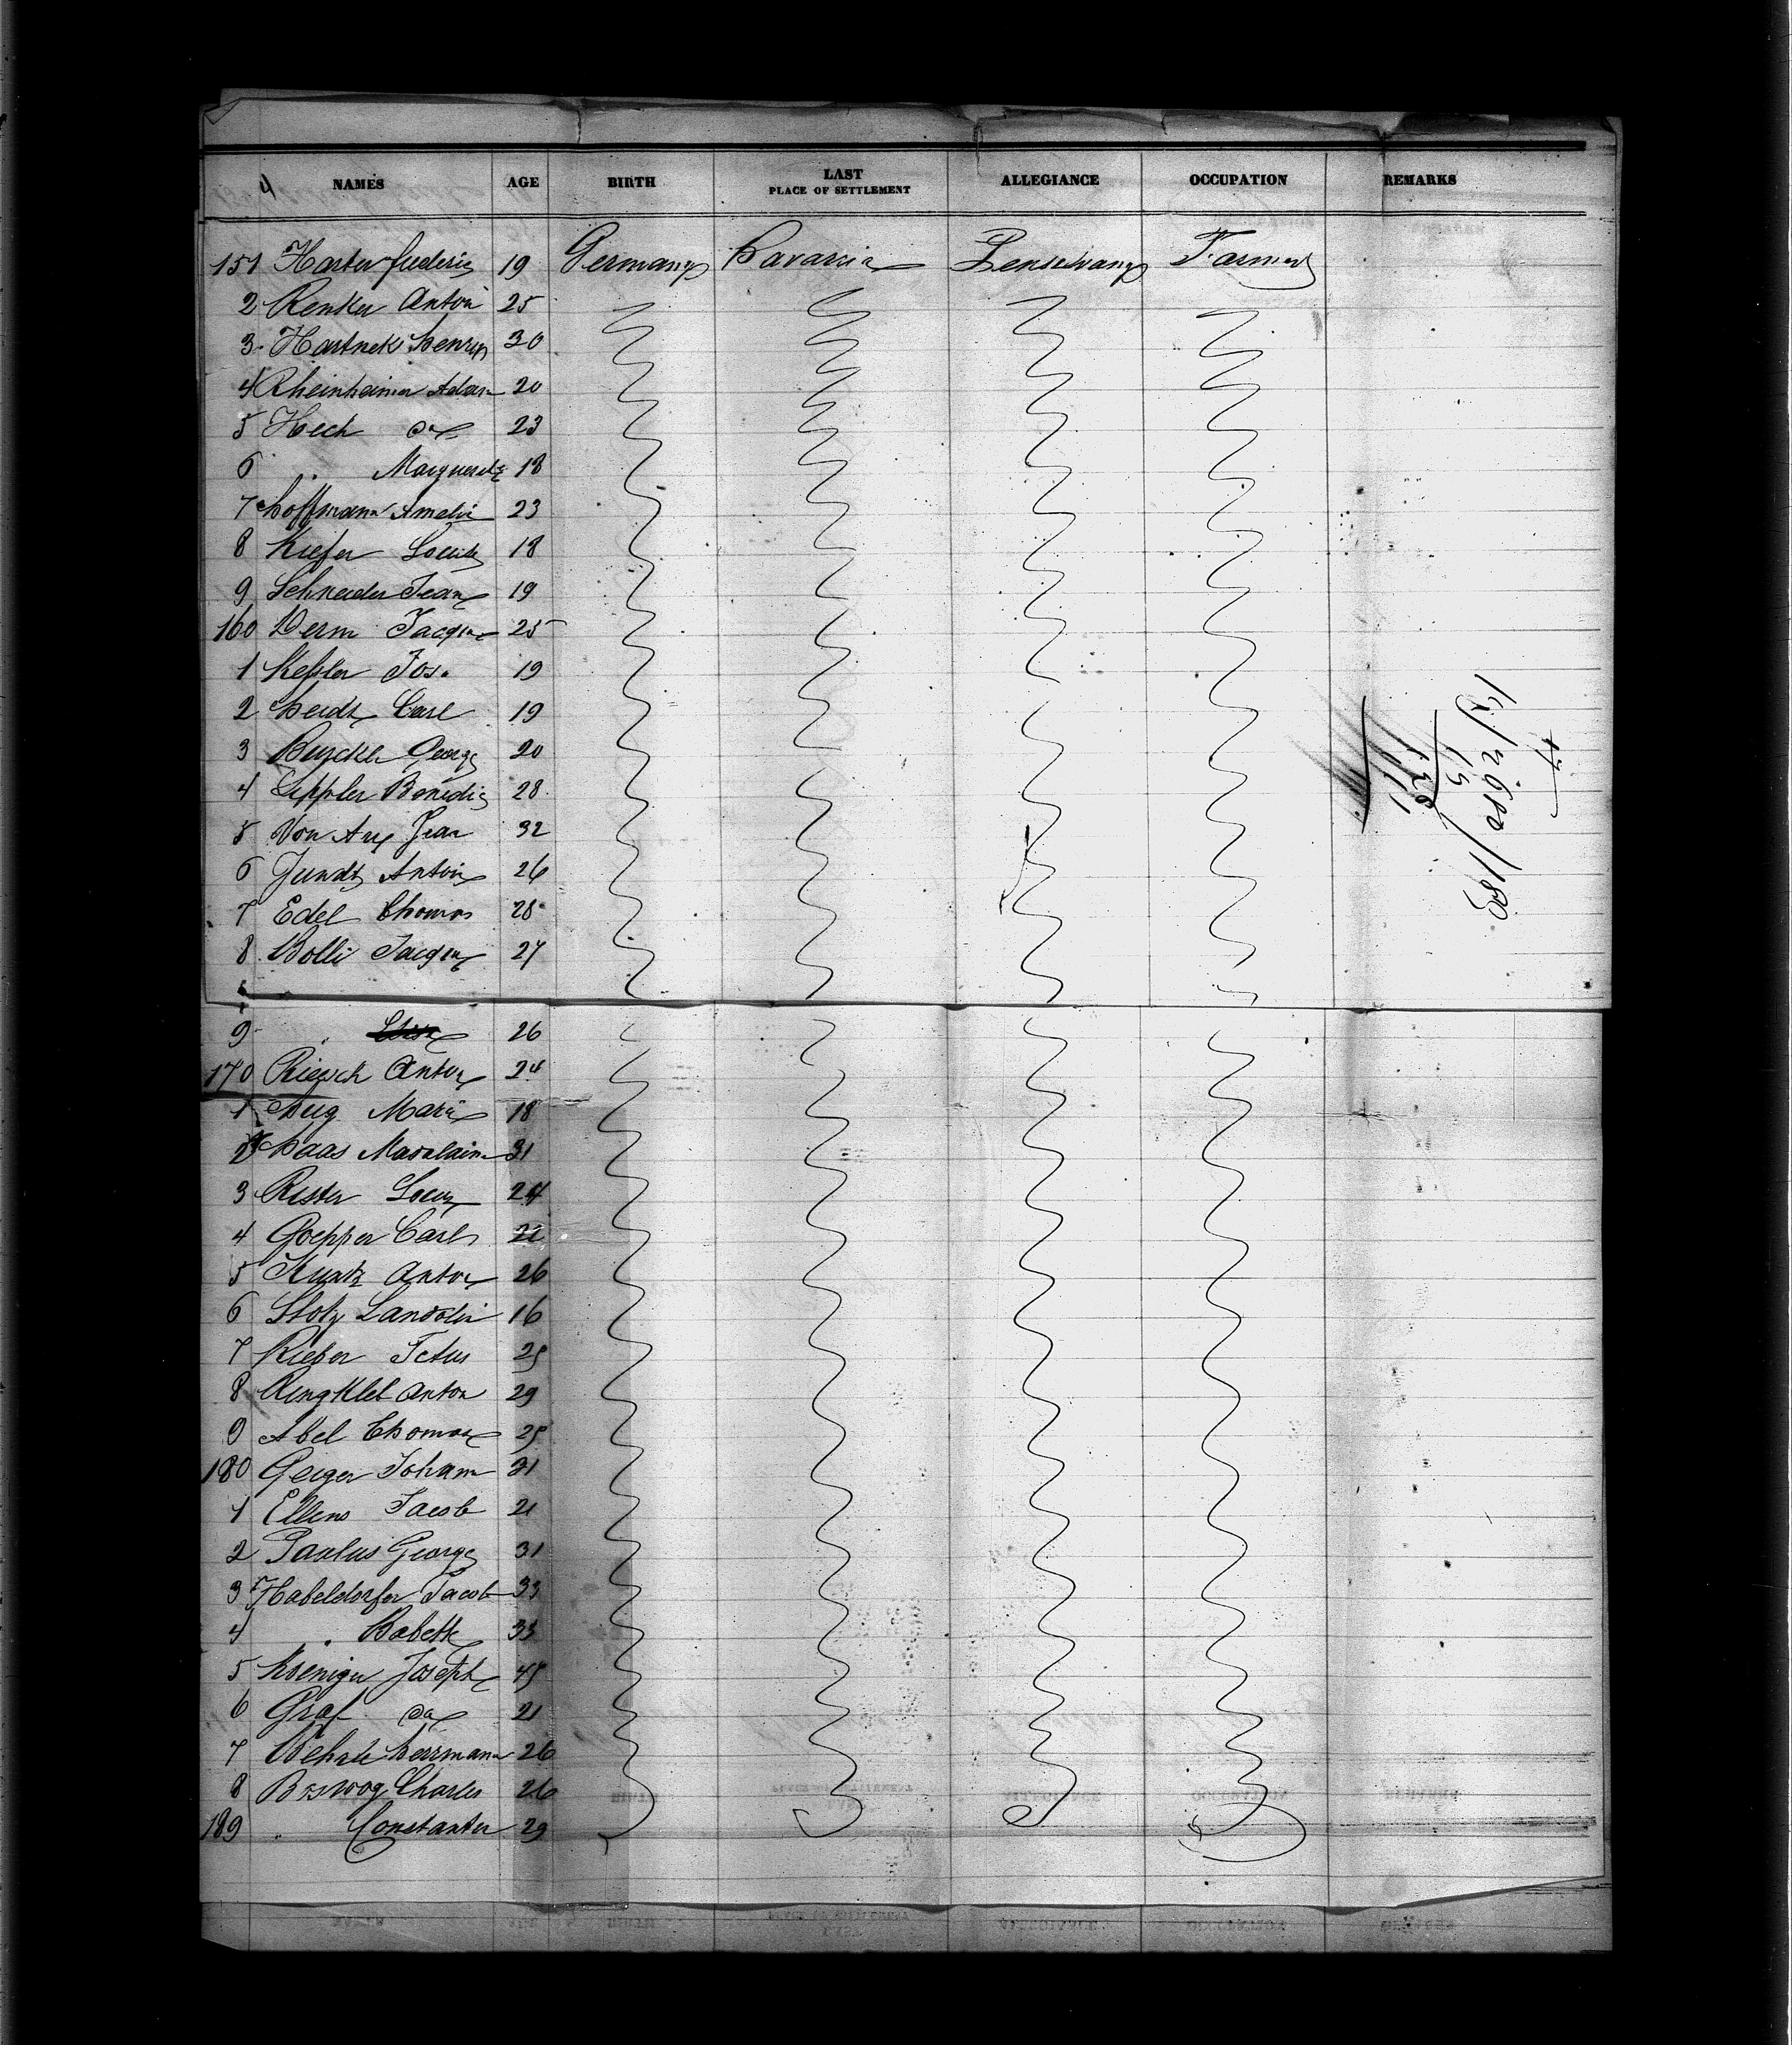 4 NAMES AGE BIRTH LAST PLACE OF SETTLEMENT ALLEGIANCE OCCUPATION REMARKS
151 Harter frederic 19 Germany Bavaria Penselvany Farmer
2 Renker Anton 25
3 Hartnek henry 30
4 Rheinheimer Adam 20
5 Hech 23
6 " Marguerite 18
7 hoffmann Amelie 23
8 Kiefer Louise 18
9 Schneider Jean 19
160 Jacques 25
1 Kessler Jos. 19
2 heidt Carl 19
3 George 20
4 Benedic 28
5 Von Arx Jean 32
6 Jundt Anton 26
7 Edel Thomas 28
8 Bolli Jacques 27
9 " 26
170 Riesch Anton 24
1 hug Marie 18
2 haas Madalaine 31
3 Rister Louis 24
4 Goepper Carl 22
5 Kuntz Anton 26
6 Stotz Landolin 16
7 Rieber 25
8 Ringklet Anton 29
9 Abel Thomas 25
180 Geiger Johann 31
1 Ellens Jacob 21
2 Paulus George 31
3 Habeldorfer Jacob 33
4 " Babette 33
5 Koeniger Joseph 45
6 Graf 21
7 herrmann 26
8 Charles 26
189 " 29